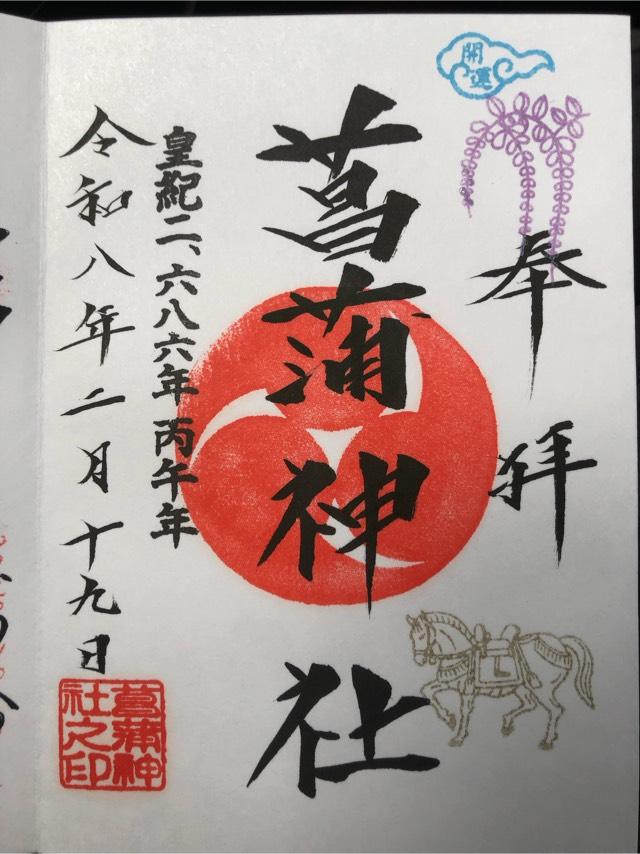 開運
奉拝
菖蒲神社
皇紀二、六八六年丙午年
令和八年二月十九日
菖蒲神
社之印